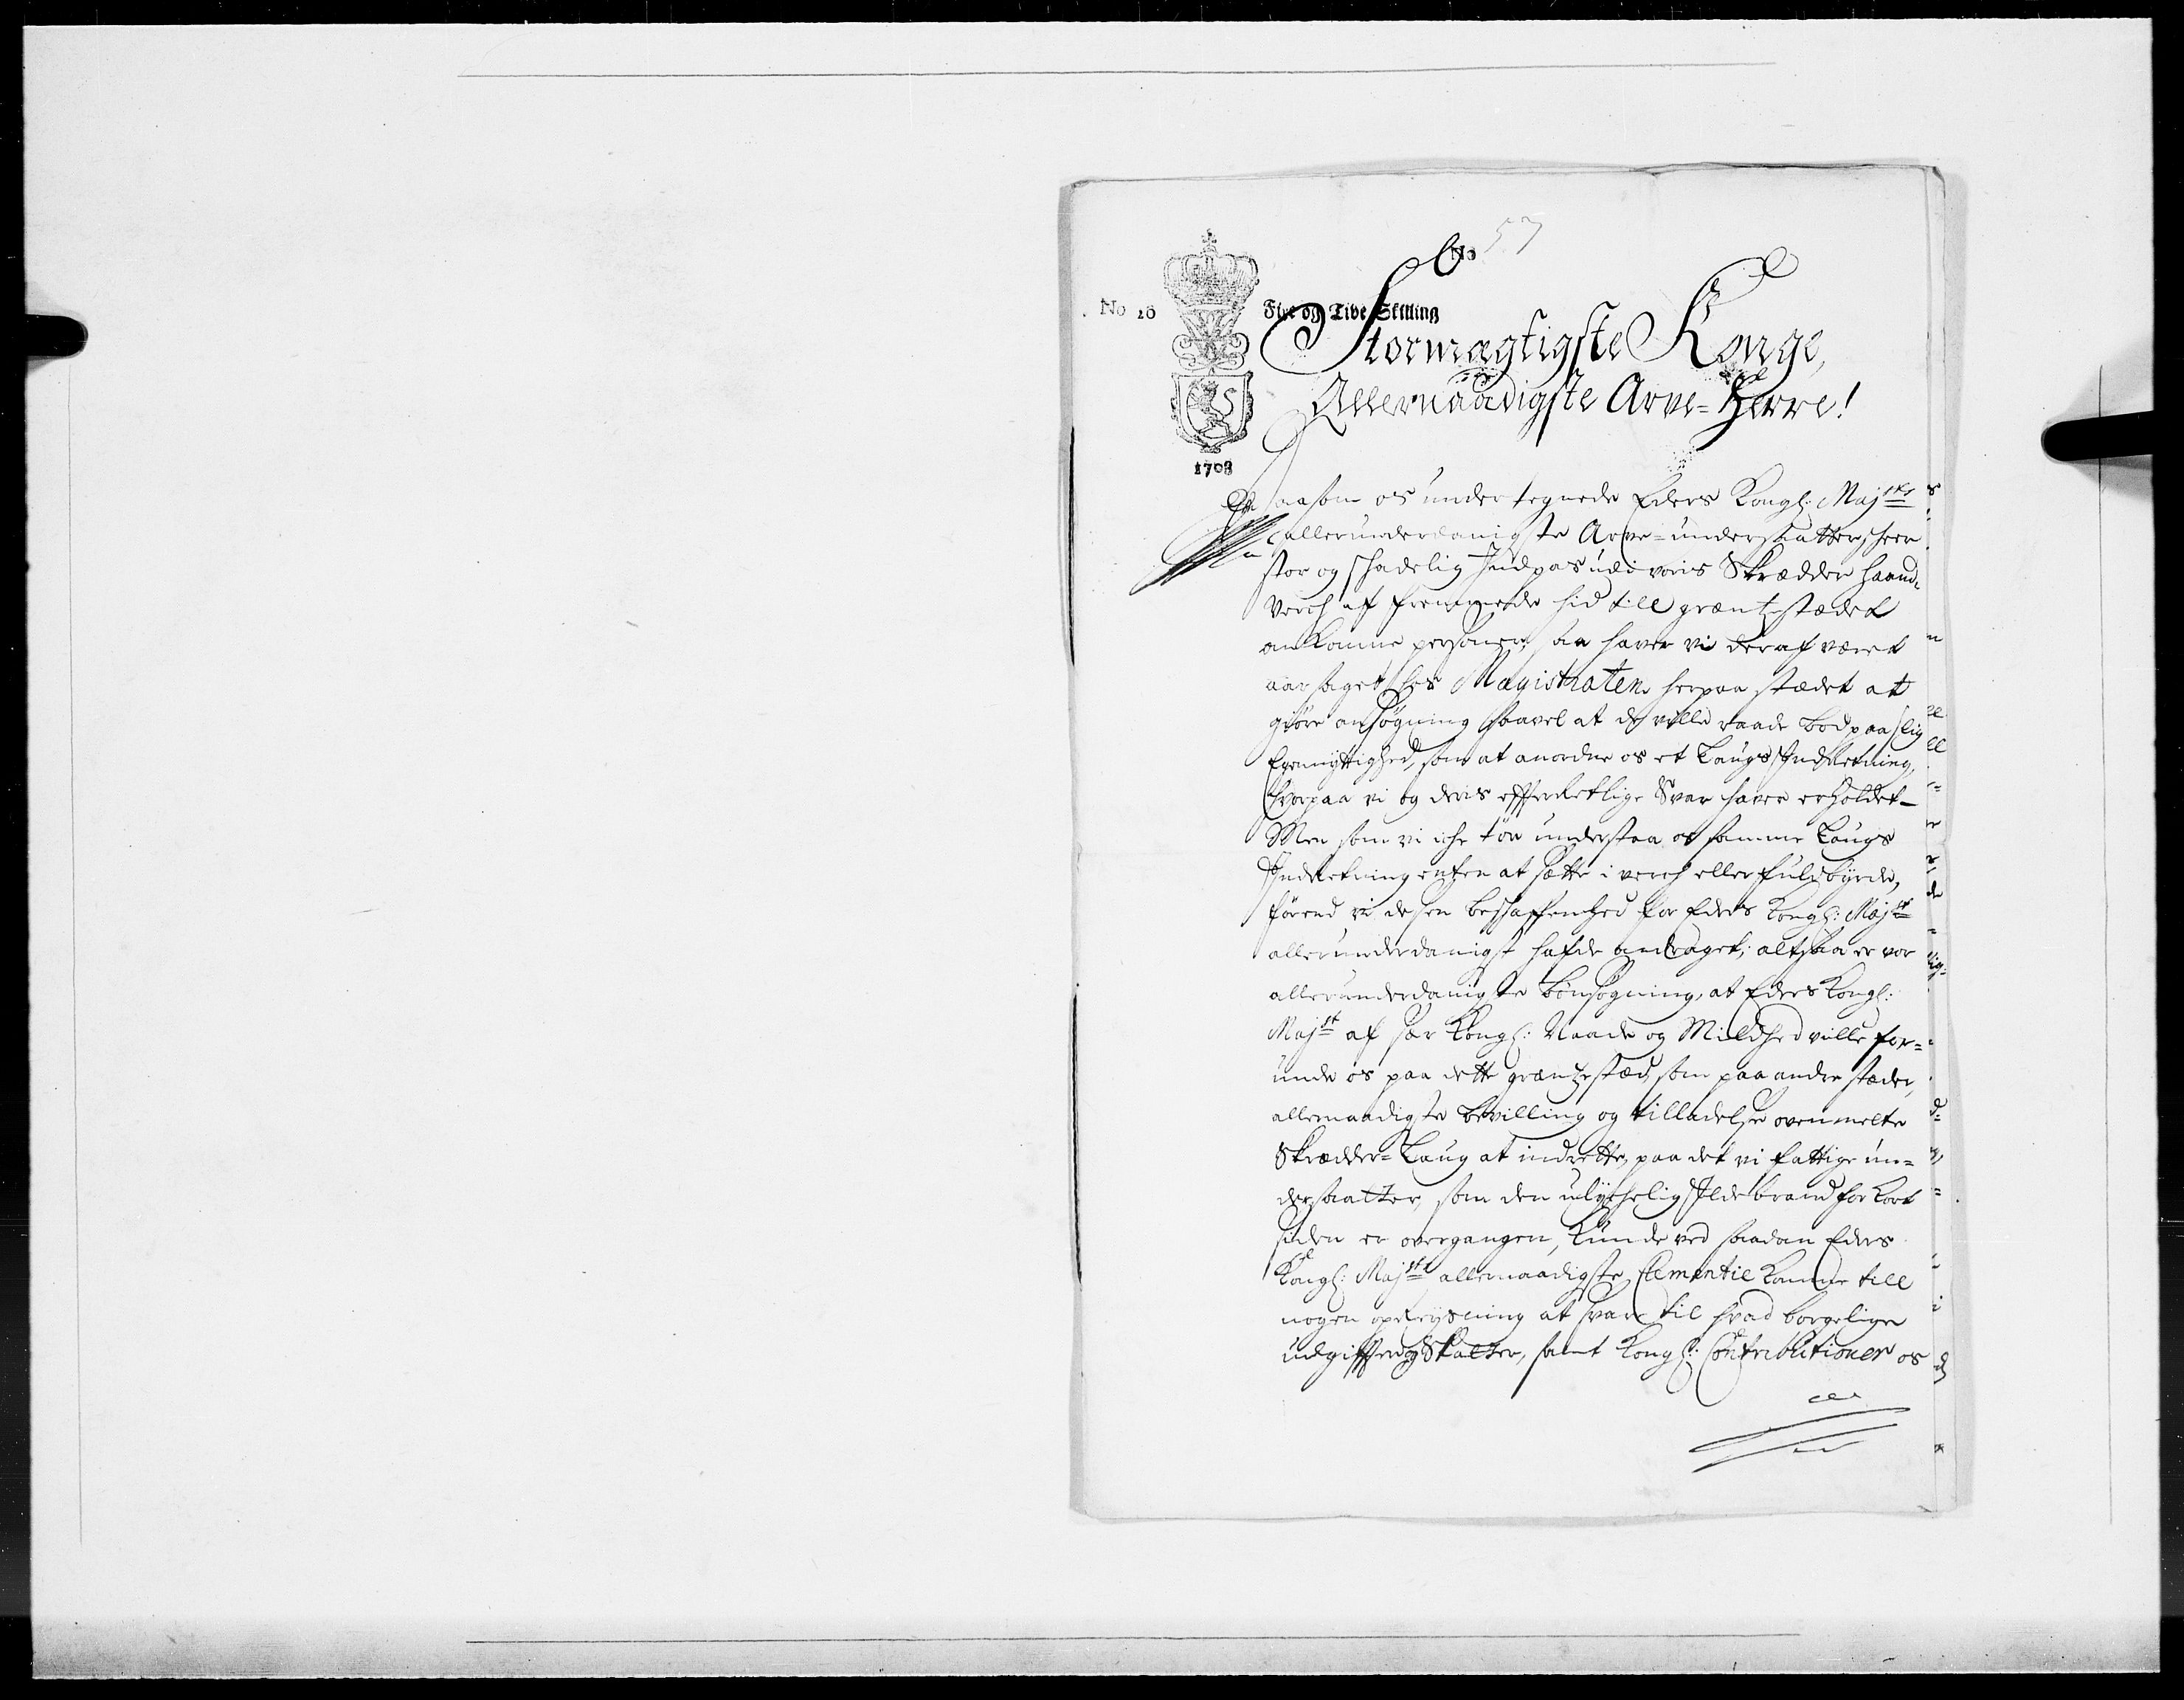 57
No 16
Fire og Tive Skilling
Stormægtigste Konge,
Allernaadigste Arve-Herre!
1708
Saasom os undertegnede Eders Kongl: Majsts
allerunderdanigste Arve-undersaatter, skeer
stor og schadelig Indpas udi voris Skrædder haand-
verch aff fremmede hid till græntzestædet
ankomne personer, saa haver vi deraf været
aarsaget hos Magistraten herpaa stædet at
giøre ansøgning saavel at de wille raade bod paa slig
Egennyttighed, som at anordne os et Laugs Indretning,
hvorpaa vi og deris efferretlige Svar haver erholdet
Men som vi iche tør understaa os samme Laugs
Indretning enten at sætte i verch eller fuldbyrde,
førend vi desen beschaffenhed for Eders Kongl: Majst
allerunderdanigst hafde andraget; altsaa er vor
allerunderdanigste bønsøgning, at Eders Kongl:
Majst af sær Kongl: Naade og Mildhed ville for-
unde os paa dette græntzestæd, som paa andre stæder,
allernaadigste bevilling og tilladelse ovenmelte
Skrædder-Laug at indrette, paa det vi fattige un-
dersaatter, som den ulychelig Ildebrand for kort
siden er overgangen, kunde ved saadan Eders
Kongl: Majsts allernaadigste Clementie komme till
nogen opreysning at svare til hvad borgelige
udgiffter og Skatter, samt Kongl: Contributioner os